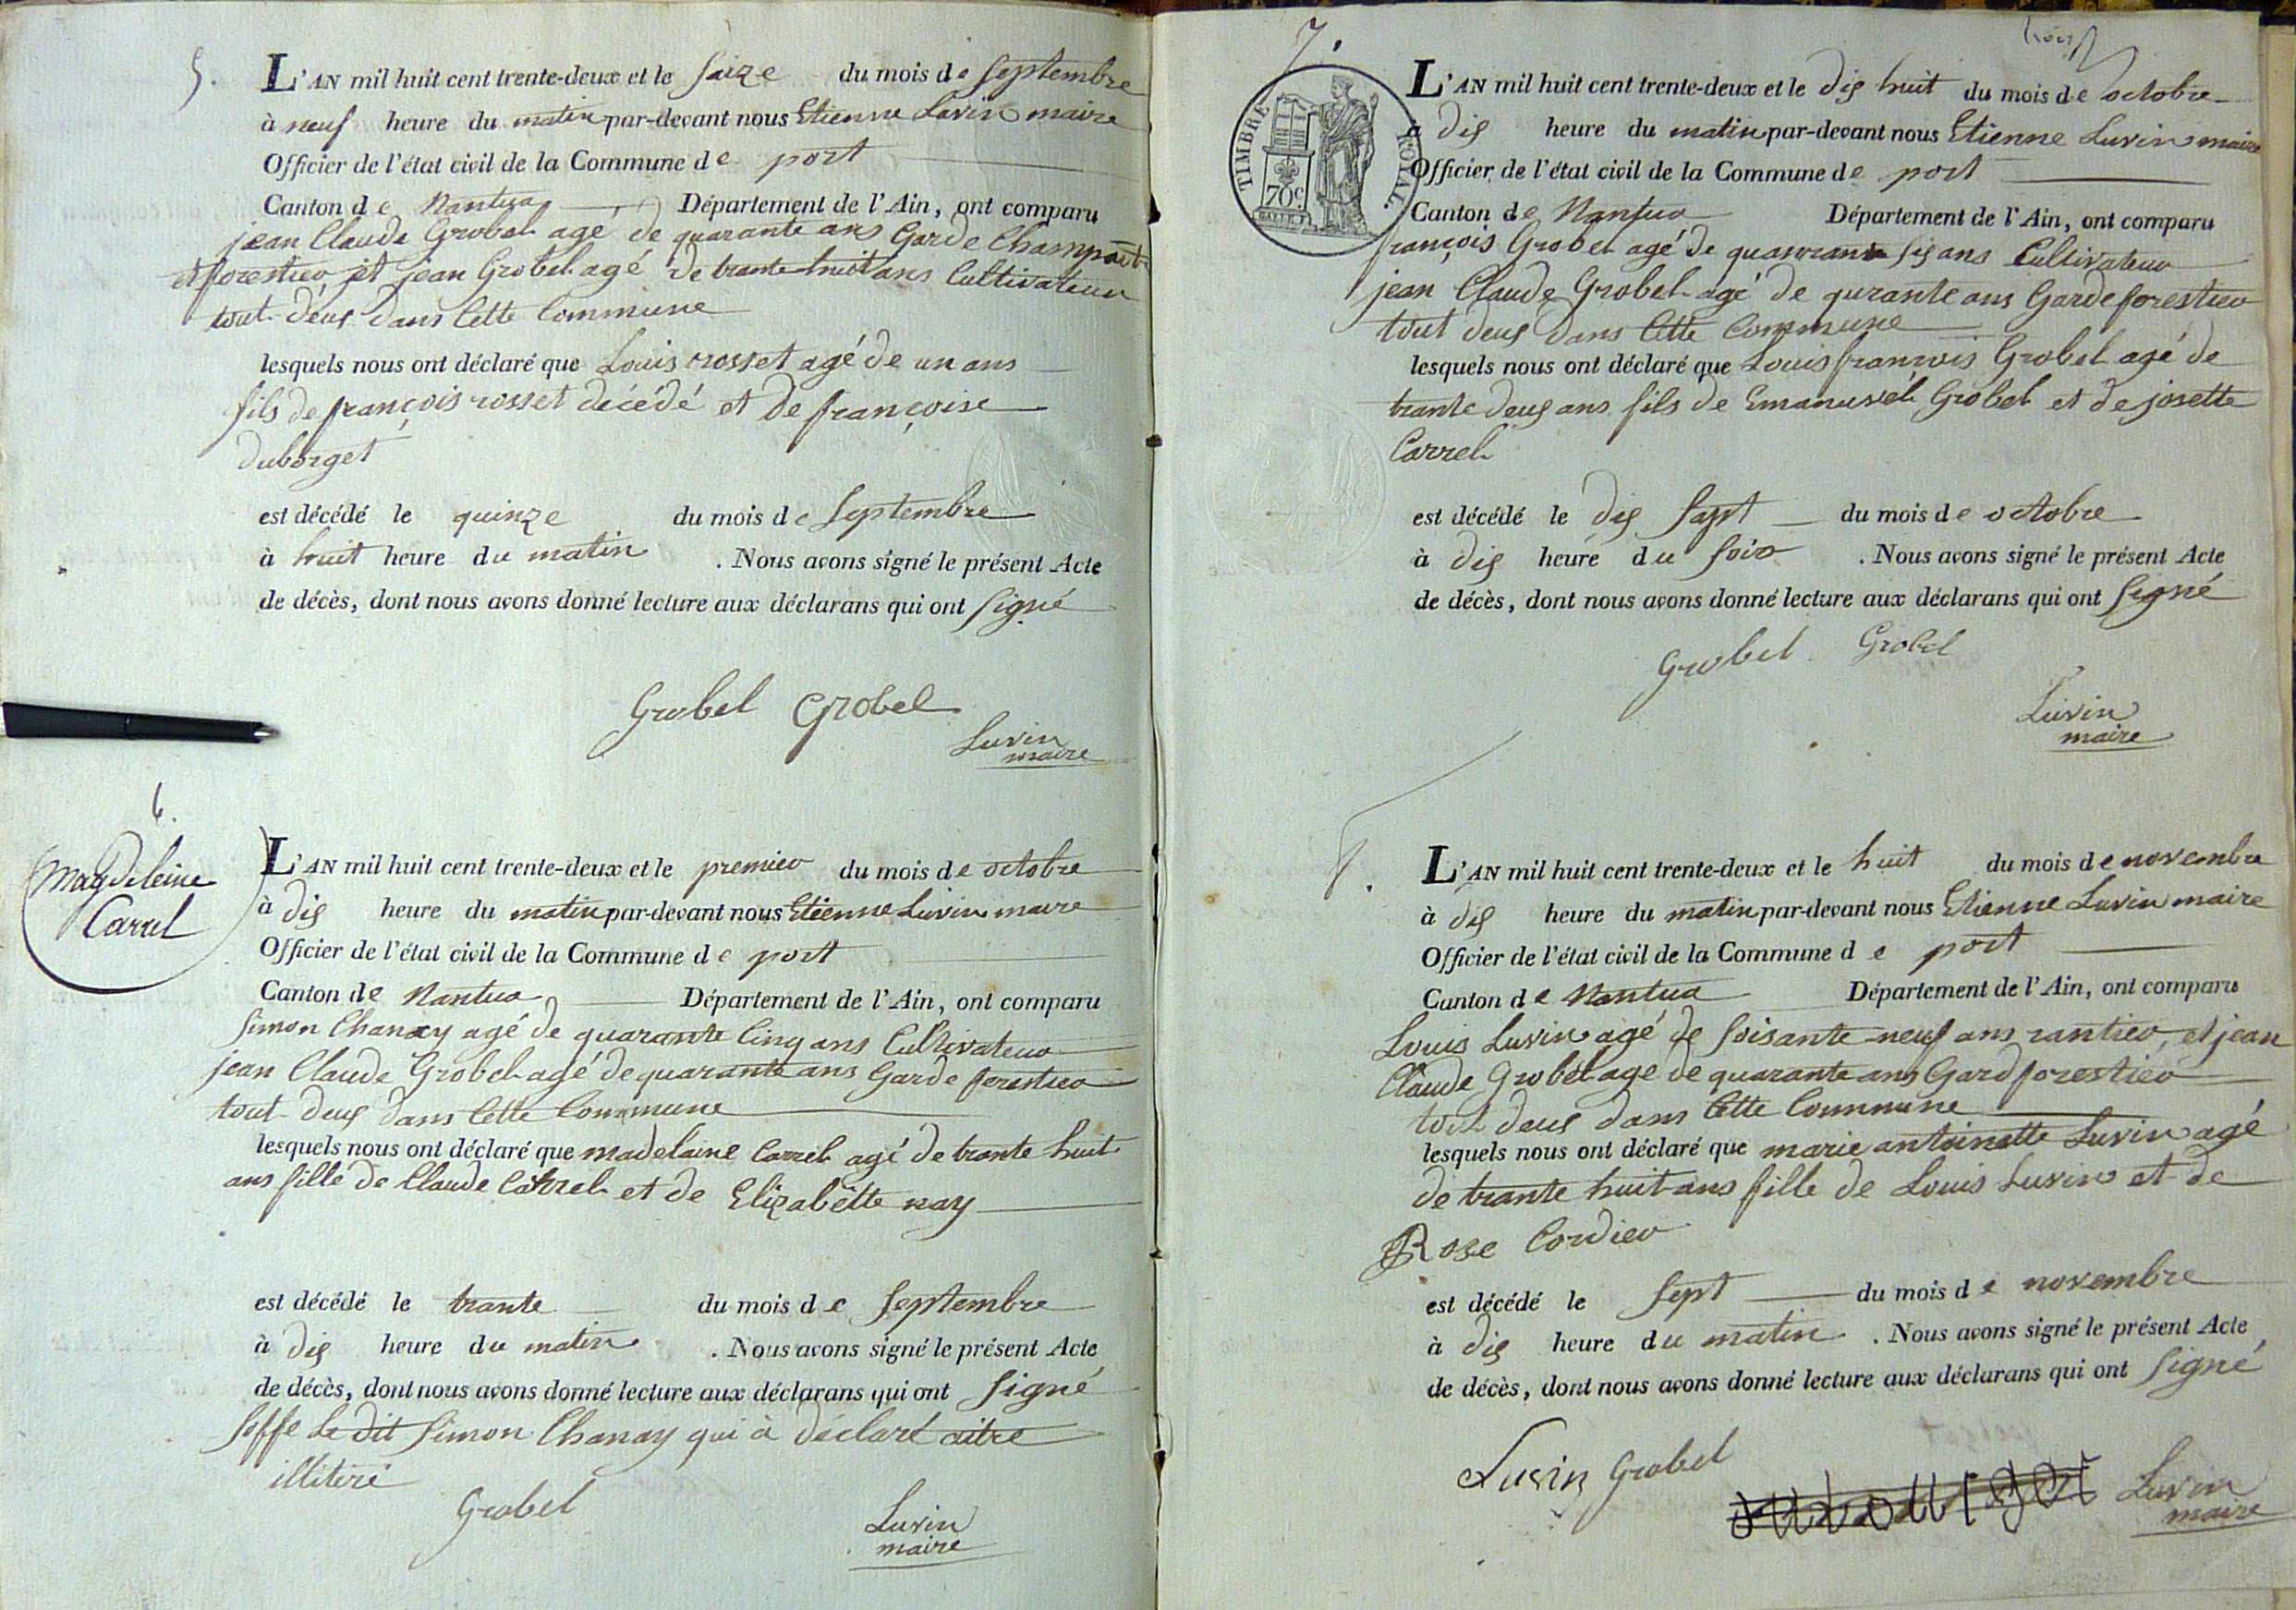 5.
L'AN mil huit cent trente-deux et le saize du mois de septembre
à neuf heure du matin par-devant nous Etienne Luvin maire
Officier de l'état civil de la Commune de port
Canton de Nantua Département de l'Ain, ont comparu
jean Claude Grobel agé de quarante ans Garde Champait
et forestier et jean Grobel agé de trante huit ans Cultivateur
tout deus dans Cette Commune
lesquels nous ont déclaré que Louis rosset agé de un ans
fils de françois rosset décédé et de françoise
duborget
est décédé le quinze du mois de septembre
à huit heure du matin . Nous avons signé le présent Acte
de décès, dont nous avons donné lecture aux déclarans qui ont signé
Grobel Grobel
Luvin
maire
6.
Magdeleine
Carrel
L'AN mil huit cent trente-deux et le premier du mois de octobre
à dis heure du matin par-devant nous Etienne Luvin maire
Officier de l'état civil de la Commune de port
Canton de Nantua Département de l'Ain, ont comparu
Simon Chanay agé de quarante Cinq ans Cultivateur
jean Claude Grobel agé de quarante ans Garde forestier
tout deus dans Cette Commune
lesquels nous ont déclaré que madelaine Carrel agé de trante huit
ans fille de Claude Carrel et de Elizabette nay
est décédé le trante du mois de septembre
à dis heure du matin . Nous avons signé le présent Acte
de décès, dont nous avons donné lecture aux déclarans qui ont signé
soffe le dit Simon Chanay qui à déclaré aitre
illitéré
Grobel
Luvin
maire
7.
trois
TIMBRE ROYAL.
70c
L'AN mil huit cent trente-deux et le dis huit du mois de octobre
à dis heure du matin par-devant nous Etienne Luvin maire
Officier de l'état civil de la Commune de port
Canton de Nantua Département de l'Ain, ont comparu
françois Grobel agé de quarante sis ans Cultivateur
jean Claude Grobel agé de qurante ans Garde forestier
tout deus dans Cette Commune
lesquels nous ont déclaré que Louis françois Grobel agé de
trante deus ans fils de Emanuel Grobel et de josette
Carrel
est décédé le dis sapt du mois de octobre
à dis heure du soir . Nous avons signé le présent Acte
de décès, dont nous avons donné lecture aux déclarans qui ont signé
Grobel Grobel
Luvin
maire
8.
L'AN mil huit cent trente-deux et le huit du mois de novembre
à dis heure du matin par-devant nous Etienne Luvin maire
Officier de l'état civil de la Commune de port
Canton de Nantua Département de l'Ain, ont comparu
Louis Luvin agé de soisante neuf ans rantier, et jean
Claude Grobel age de quarante ans Gard forestier
tout deus dans Cette Commune
lesquels nous ont déclaré que marie antoinette Luvin agé
de trante huit ans fille de Louis Luvin et de
Rose Cordier
est décédé le sept du mois de novembre
à dis heure du matin . Nous avons signé le présent Acte
de décès, dont nous avons donné lecture aux déclarans qui ont signé
Luvin Grobel
Luvin
maire